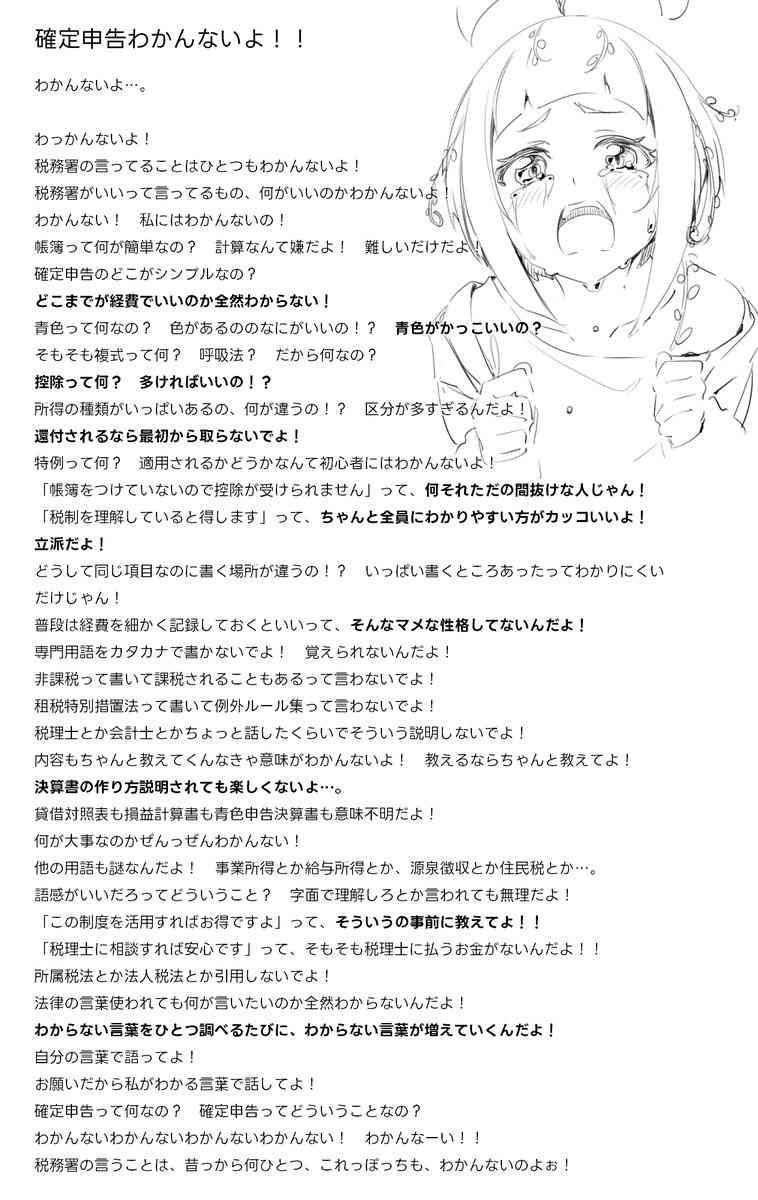 確定申告わかんないよ！！
わかんないよ…。
わっかんないよ！
税務署の言ってることはひとつもわかんないよ！
税務署がいいって言ってるもの、何がいいのかわかんないよ！
わかんない！　私にはわかんないの！
帳簿って何が簡単なの？　計算なんて嫌だよ！　難しいだけだよ！
確定申告のどこがシンプルなの？
どこまでが経費でいいのか全然わからない！
青色って何なの？　色があるののなにがいいの！？　青色がかっこいいの？
そもそも複式って何？　呼吸法？　だから何なの？
控除って何？　多ければいいの！？
所得の種類がいっぱいあるの、何が違うの！？　区分が多すぎるんだよ！
還付されるなら最初から取らないでよ！
特例って何？　適用されるかどうかなんて初心者にはわかんないよ！
「帳簿をつけていないので控除が受けられません」って、何それただの間抜けな人じゃん！
「税制を理解していると得します」って、ちゃんと全員にわかりやすい方がカッコいいよ！
立派だよ！
どうして同じ項目なのに書く場所が違うの！？　いっぱい書くところあったってわかりにくい
だけじゃん！
普段は経費を細かく記録しておくといいって、そんなマメな性格してないんだよ！
専門用語をカタカナで書かないでよ！　覚えられないんだよ！
非課税って書いて課税されることもあるって言わないでよ！
租税特別措置法って書いて例外ルール集って言わないでよ！
税理士とか会計士とかちょっと話したくらいでそういう説明しないでよ！
内容もちゃんと教えてくんなきゃ意味がわかんないよ！　教えるならちゃんと教えてよ！
決算書の作り方説明されても楽しくないよ…。
貸借対照表も損益計算書も青色申告決算書も意味不明だよ！
何が大事なのかぜんっぜんわかんない！
他の用語も謎なんだよ！　事業所得とか給与所得とか、源泉徴収とか住民税とか…。
語感がいいだろってどういうこと？　字面で理解しろとか言われても無理だよ！
「この制度を活用すればお得ですよ」って、そういうの事前に教えてよ！！
「税理士に相談すれば安心です」って、そもそも税理士に払うお金がないんだよ！！
所属税法とか法人税法とか引用しないでよ！
法律の言葉使われても何が言いたいのか全然わからないんだよ！
わからない言葉をひとつ調べるたびに、わからない言葉が増えていくんだよ！
自分の言葉で語ってよ！
お願いだから私がわかる言葉で話してよ！
確定申告って何なの？　確定申告ってどういうことなの？
わかんないわかんないわかんないわかんない！　わかんなーい！！
税務署の言うことは、昔っから何ひとつ、これっぽっちも、わかんないのよぉ！